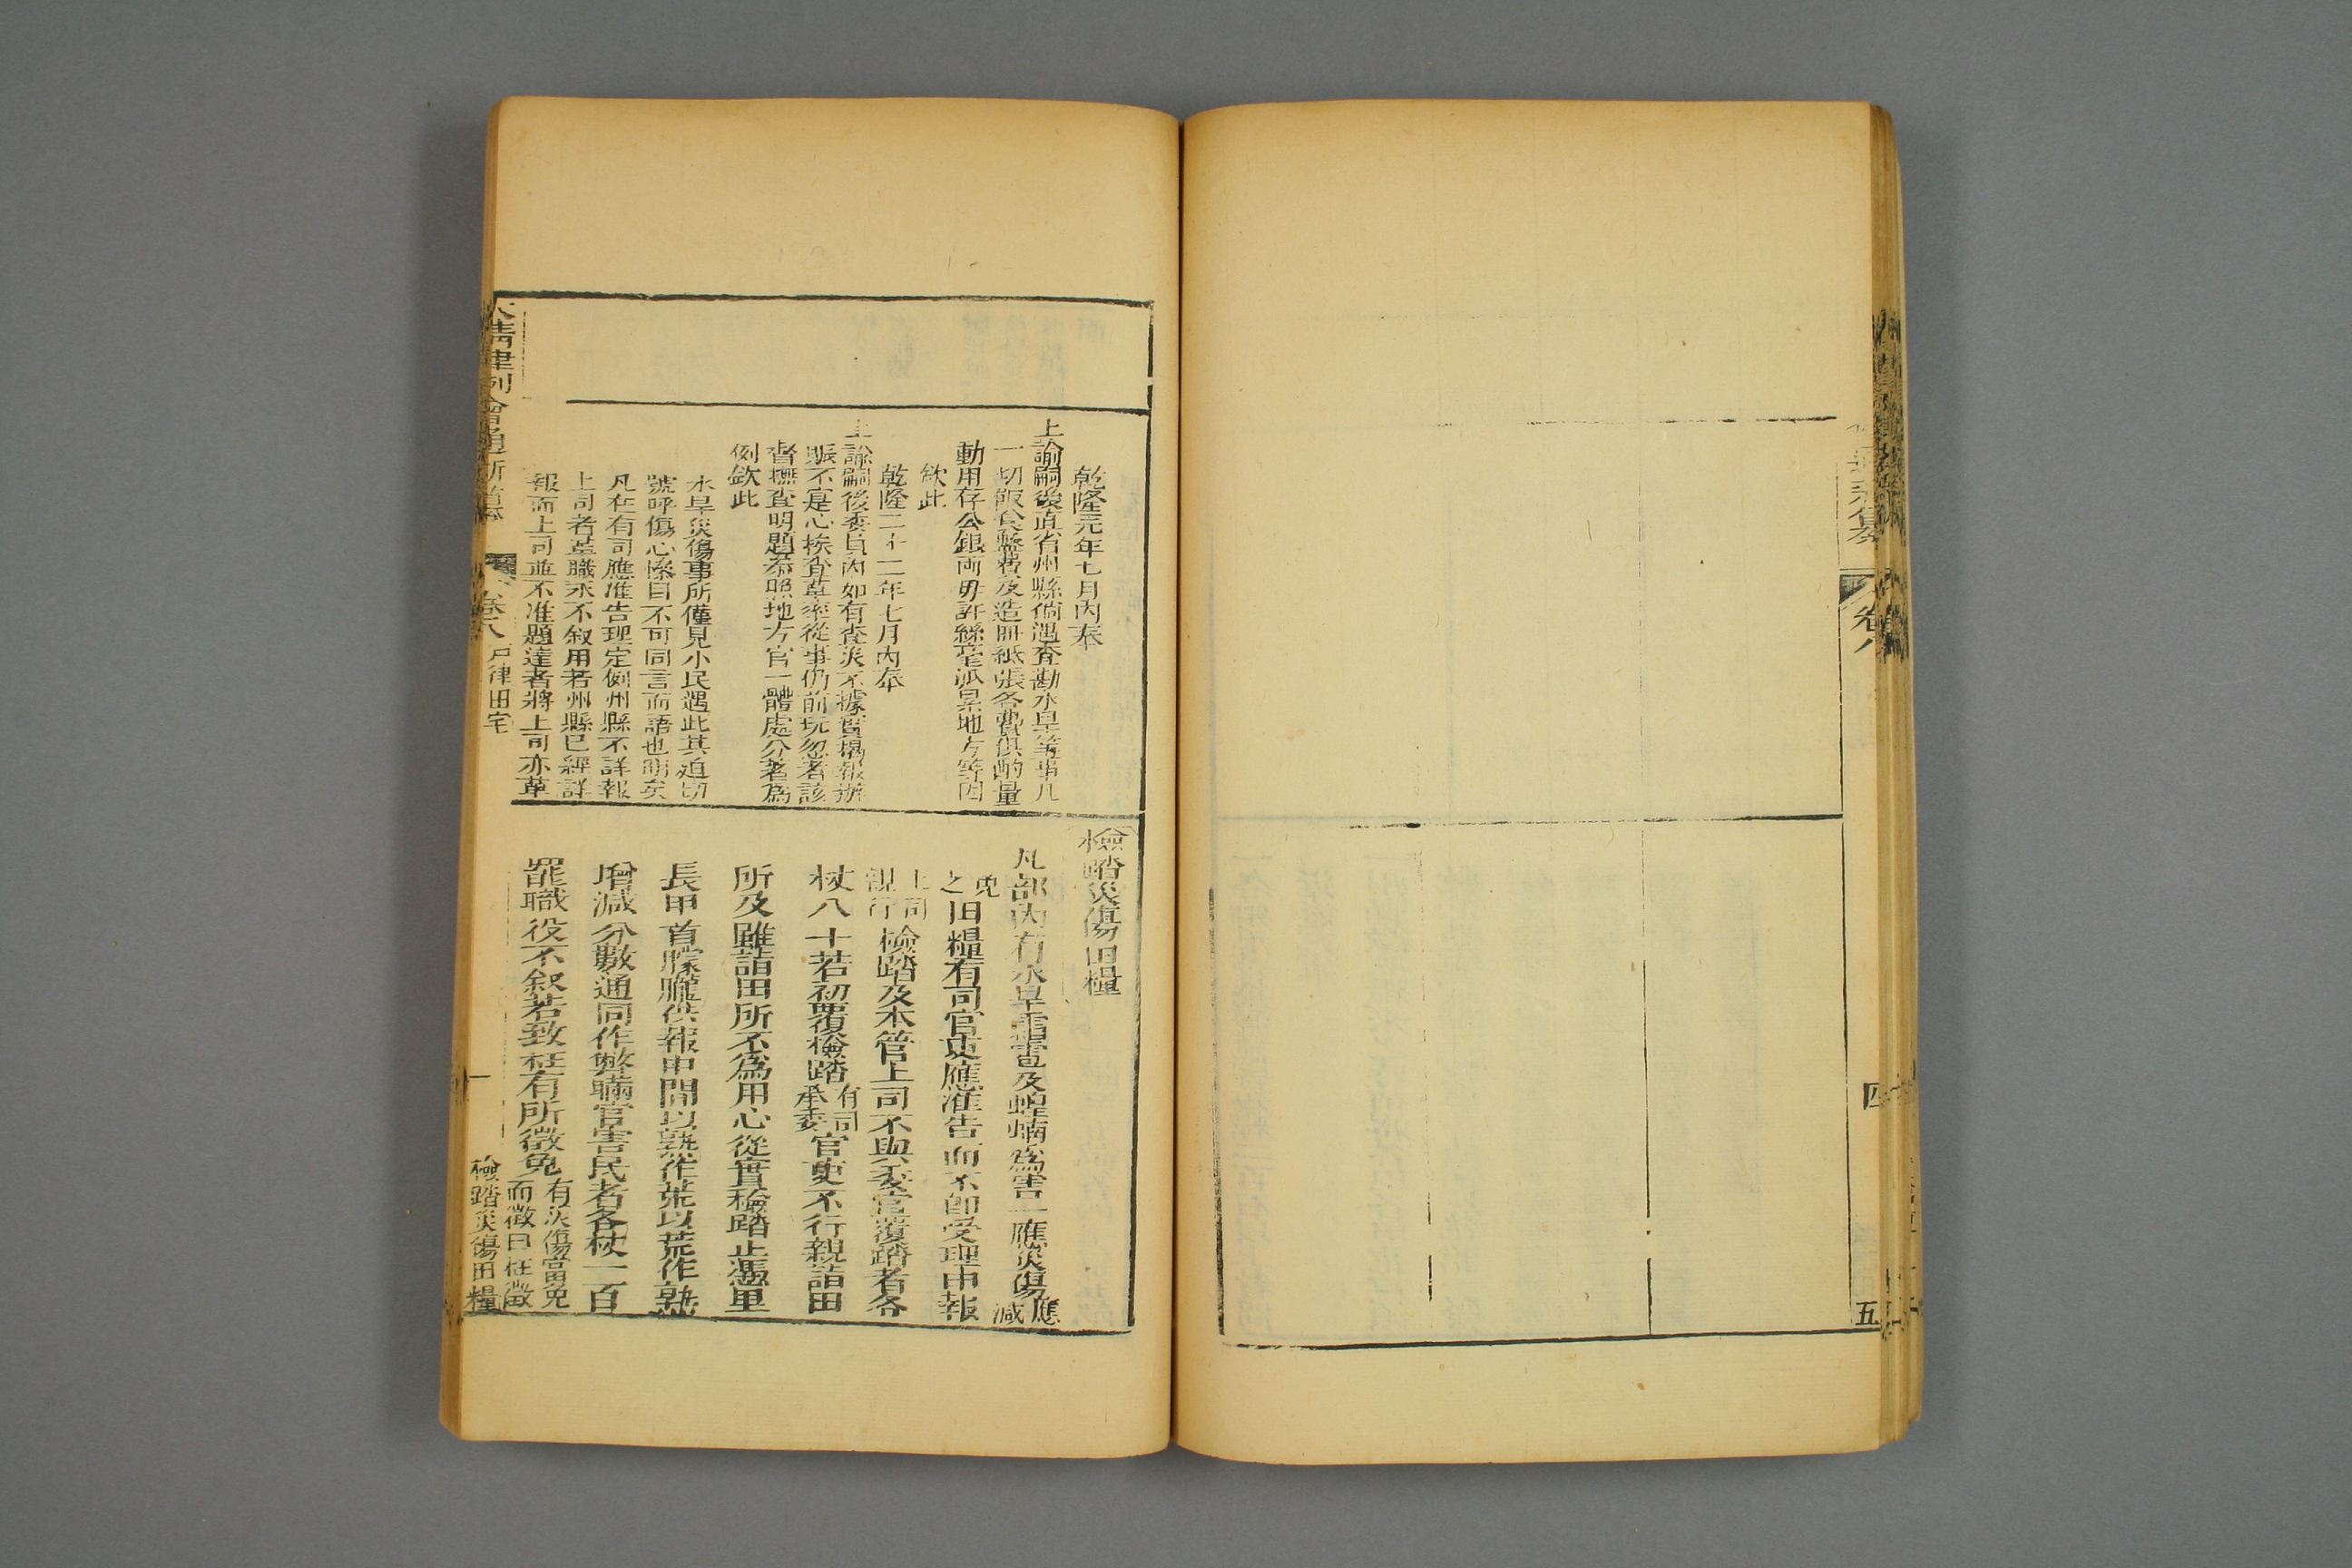 卷八
四
五
乾隆元年七月內奉
上諭嗣後直省州縣倘遇查勘水旱等事凡
一切飯食盤費及造冊紙張各費俱酌量
動用存公銀兩毋許絲毫派累地方等因
欽此
乾隆二十二年七月內奉
上諭嗣後委員內如有查災不據實揭報辦
賑不寔心挨查草率從事仍前玩忽者該
督撫查明題叅照地方官一體處分著為
例欽此
水旱災傷事所僅見小民遇此其迫切
號呼傷心慘目不可同言而語也明矣
凡在有司應准告理定例州縣不詳報
上司者革職永不叙用若州縣已經詳
報而上司並不准題達者將上司亦革
檢踏災傷田糧
凡部內有水旱霜雹及蝗蝻為害一應災傷應減
免之田糧有司官吏應准告而不卽受理申報
上司親行檢踏及本管上司不與委官覆踏者各
杖八十若初覆檢踏有司承委官吏不行親詣田
所及雖詣田所不為用心從實檢踏止憑里
長甲首朦朧供報中間以熟作荒以荒作熟
增減分數通同作弊瞞官害民者各杖一百
罷職役不敘若致枉有所徵免有災傷當免而徵曰枉徵
大清律例會通新纂
卷八 戶律田宅
一
檢踏災傷田糧